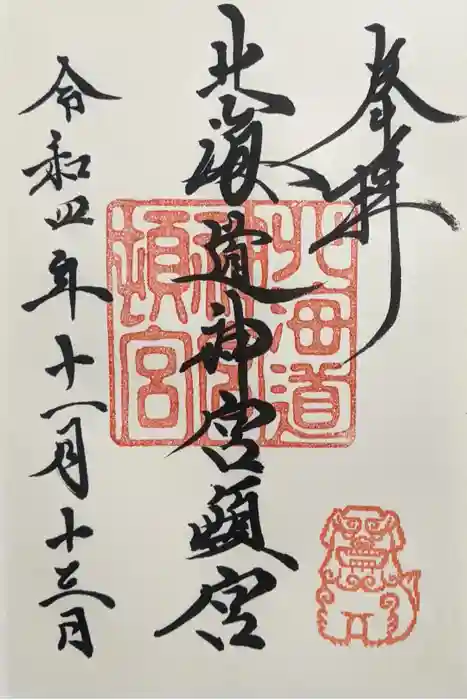 奉拝
北海道神宮頓宮
令和四年十一月十三日
北海道
神宮
頓宮